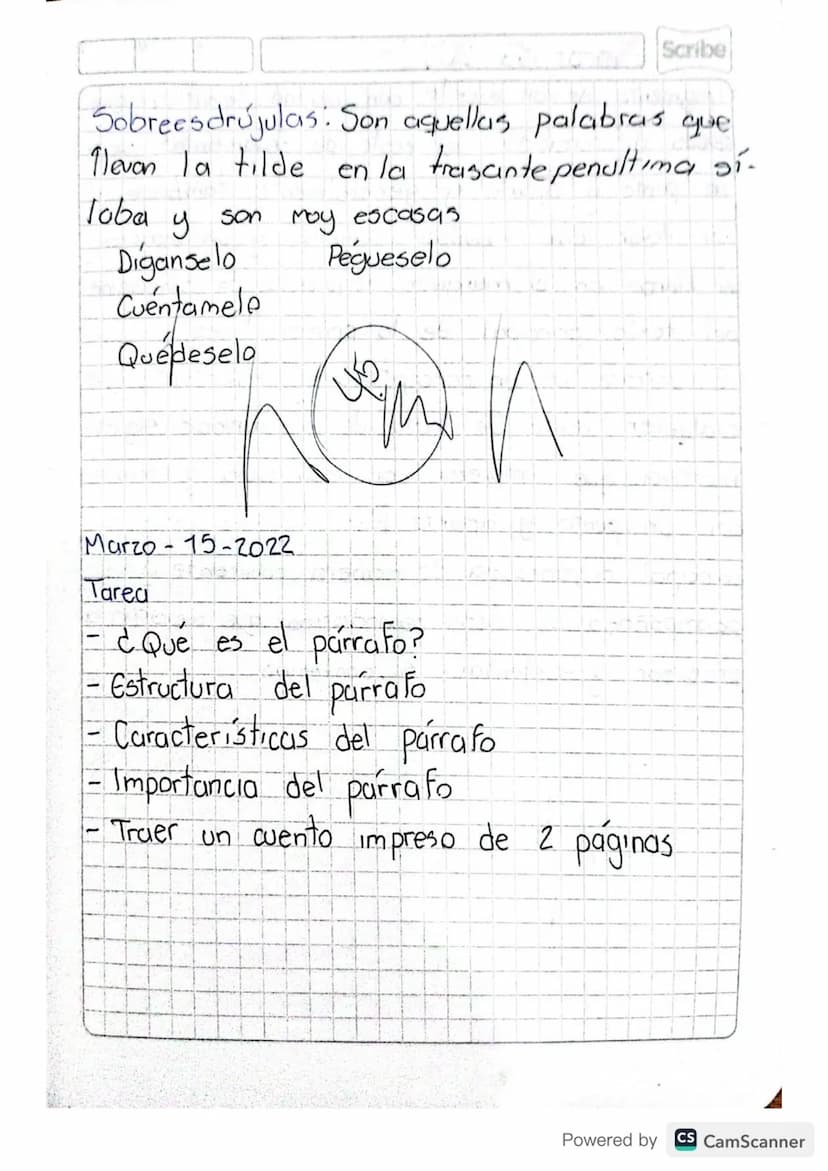 Scribe
Sobreesdrújulas: Son aquellas palabras que
llevan la tilde en la trasantepenultima sí-
laba y son muy escasas
Díganselo Pégueselo
Cuéntamelo
Quédeselo
Marzo - 15 - 2022
Tarea
- ¿Qué es el párrafo?
- Estructura del párrafo
- Características del párrafo
- Importancia del párrafo
- Traer un cuento impreso de 2 páginas
Powered by CS CamScanner